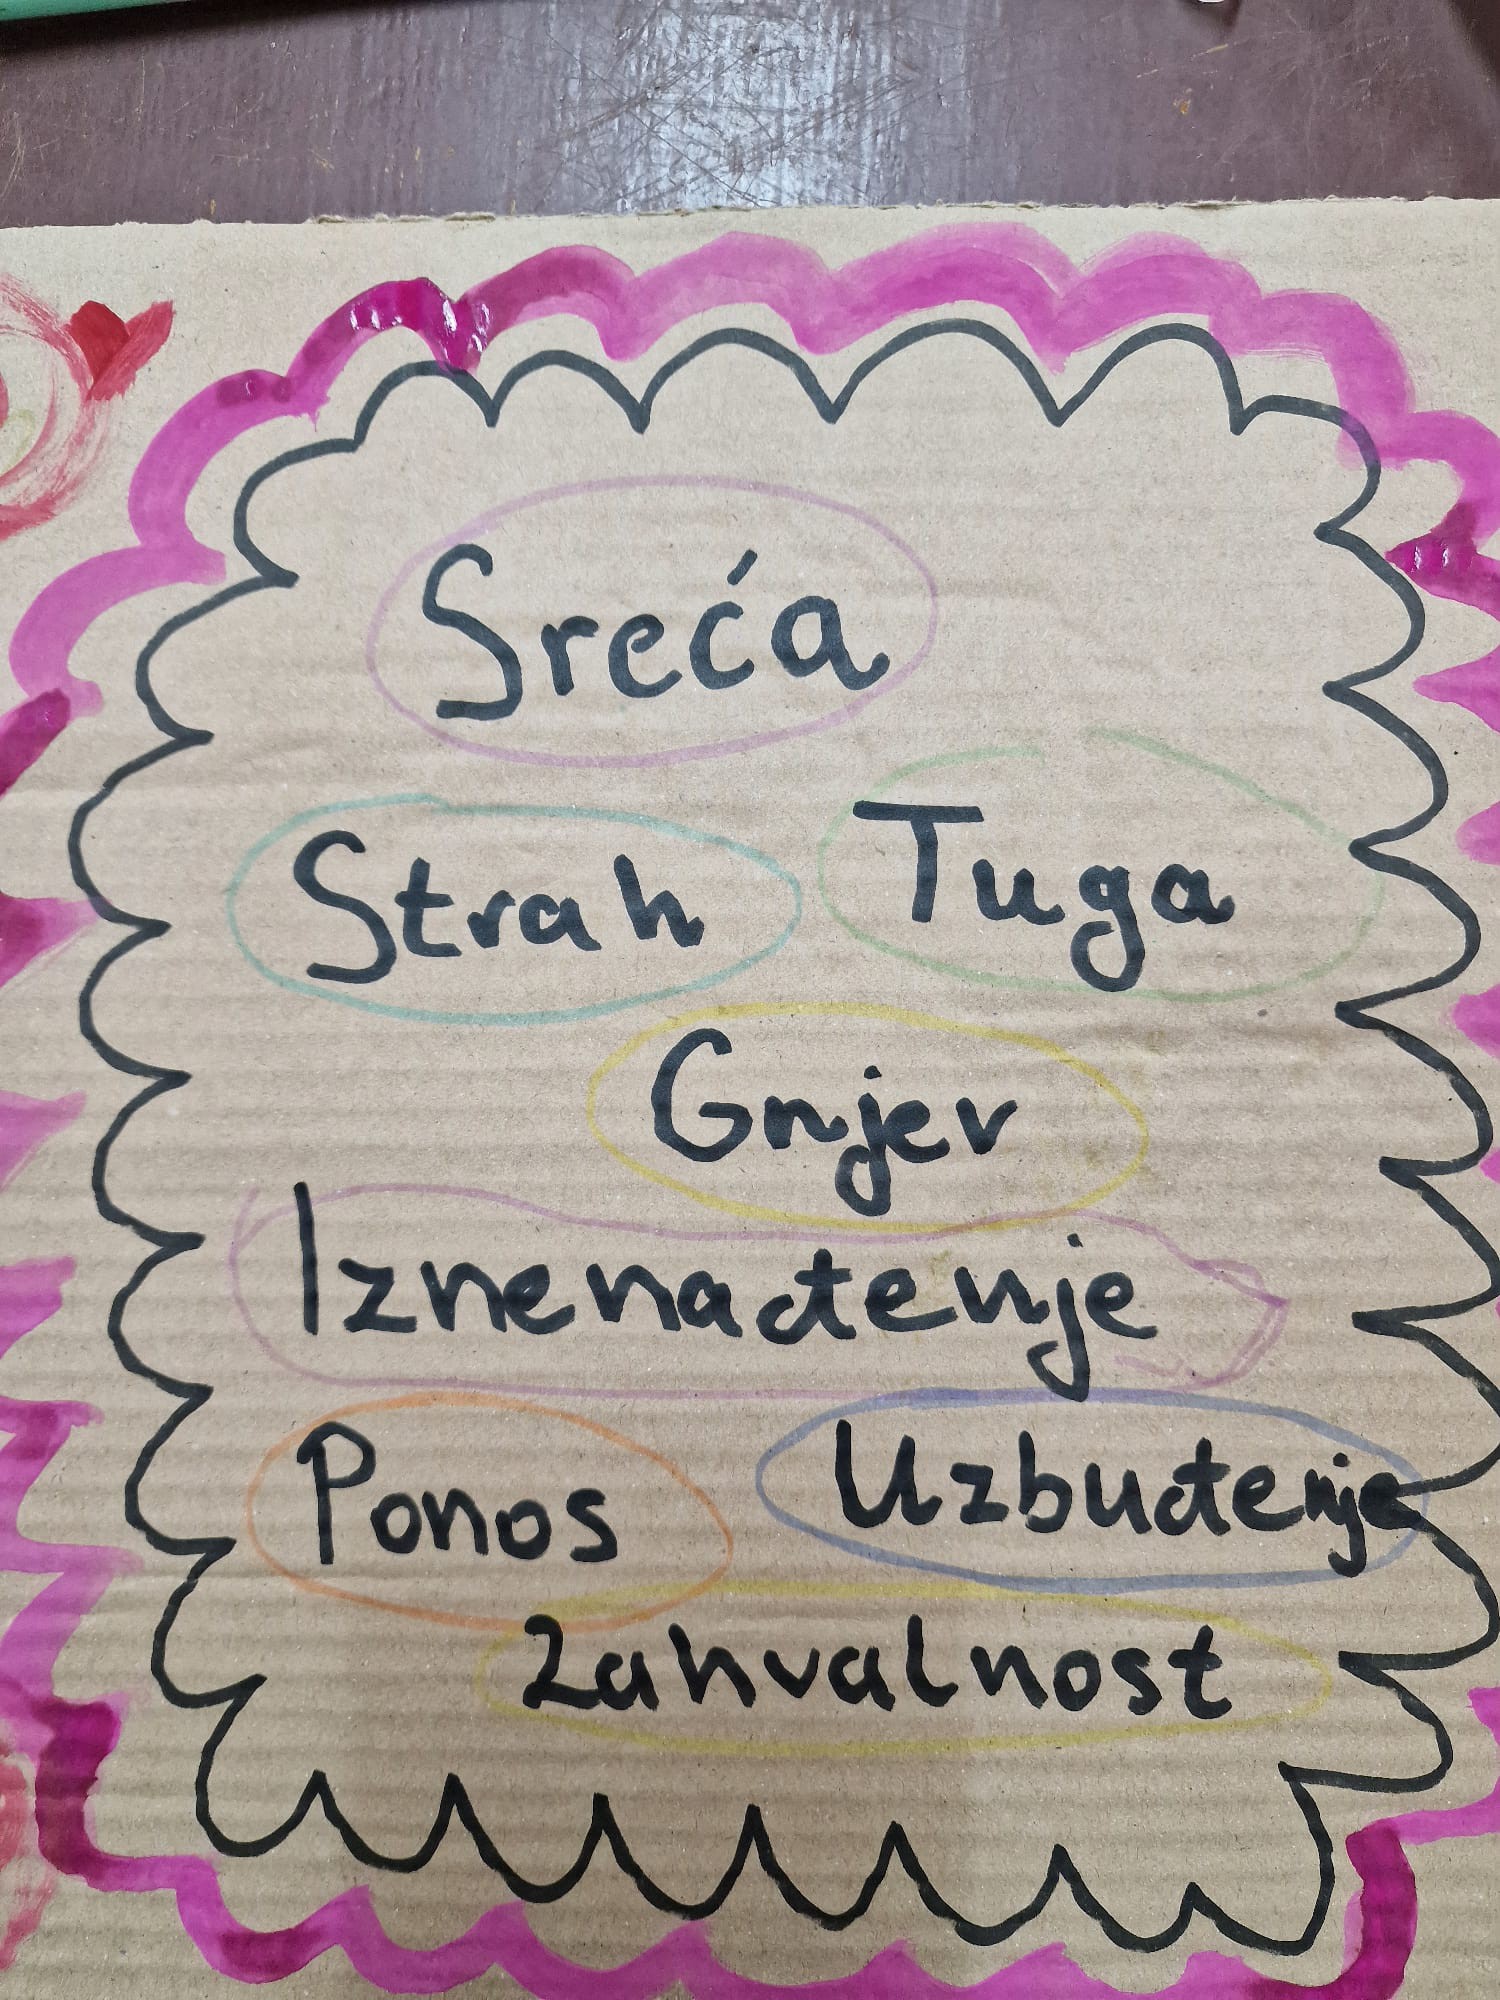 Sreća
Strah Tuga
Gnjev
Iznenađenje
Ponos Uzbuđenje
Zahvalnost